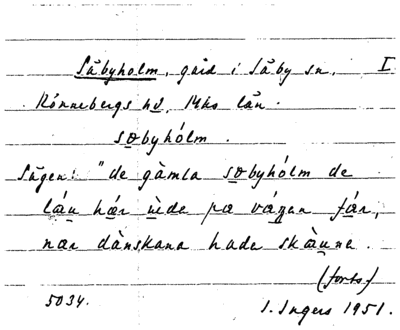 Säbyholm, gård i Säby sn, I
Rönnebergs hd, Mhs län.
søbyhólm.
Sägen: "de gàmla søbyhólm de
láu hær ùde pa vágen fár,
nær dànskana hade skàune.
(forts.)
5034. I. Ingers 1951.